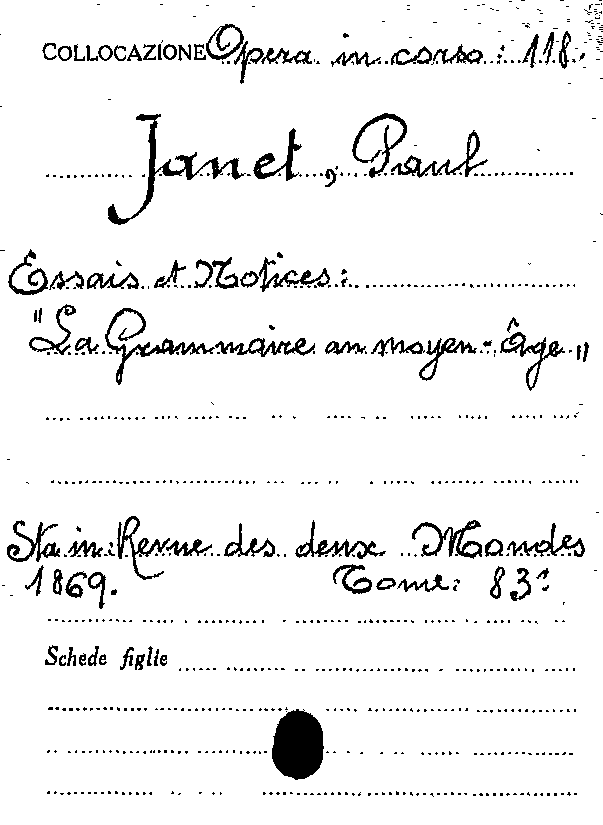 COLLOCAZIONE Opera in corso: 118.
Janet, Paul
Essais et Notices:
"La Grammaire au moyen-âge"
Sta in: Revue des deux Mondes
1869. Tome: 83º
Schede figlie